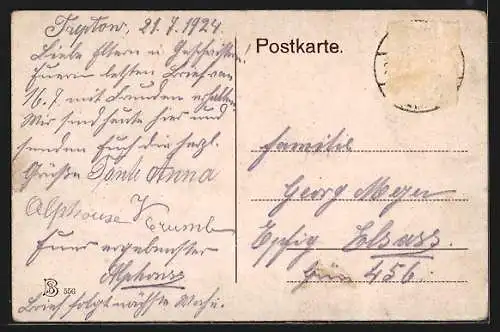 Treptow, 21.7.1924.
Liebe Eltern u Geschwister!
Euern letzten Brief vom
16.7. mit Freuden erhalten
Wir sind heute hier und
senden Euch die herzl.
Grüße Tante Anna
Alphonse
Euer ergebenster
Alphons
Brief folgt nächste Woche.
556
Postkarte.
Familie
Georg Meyer
Epfig Elsass.
456.